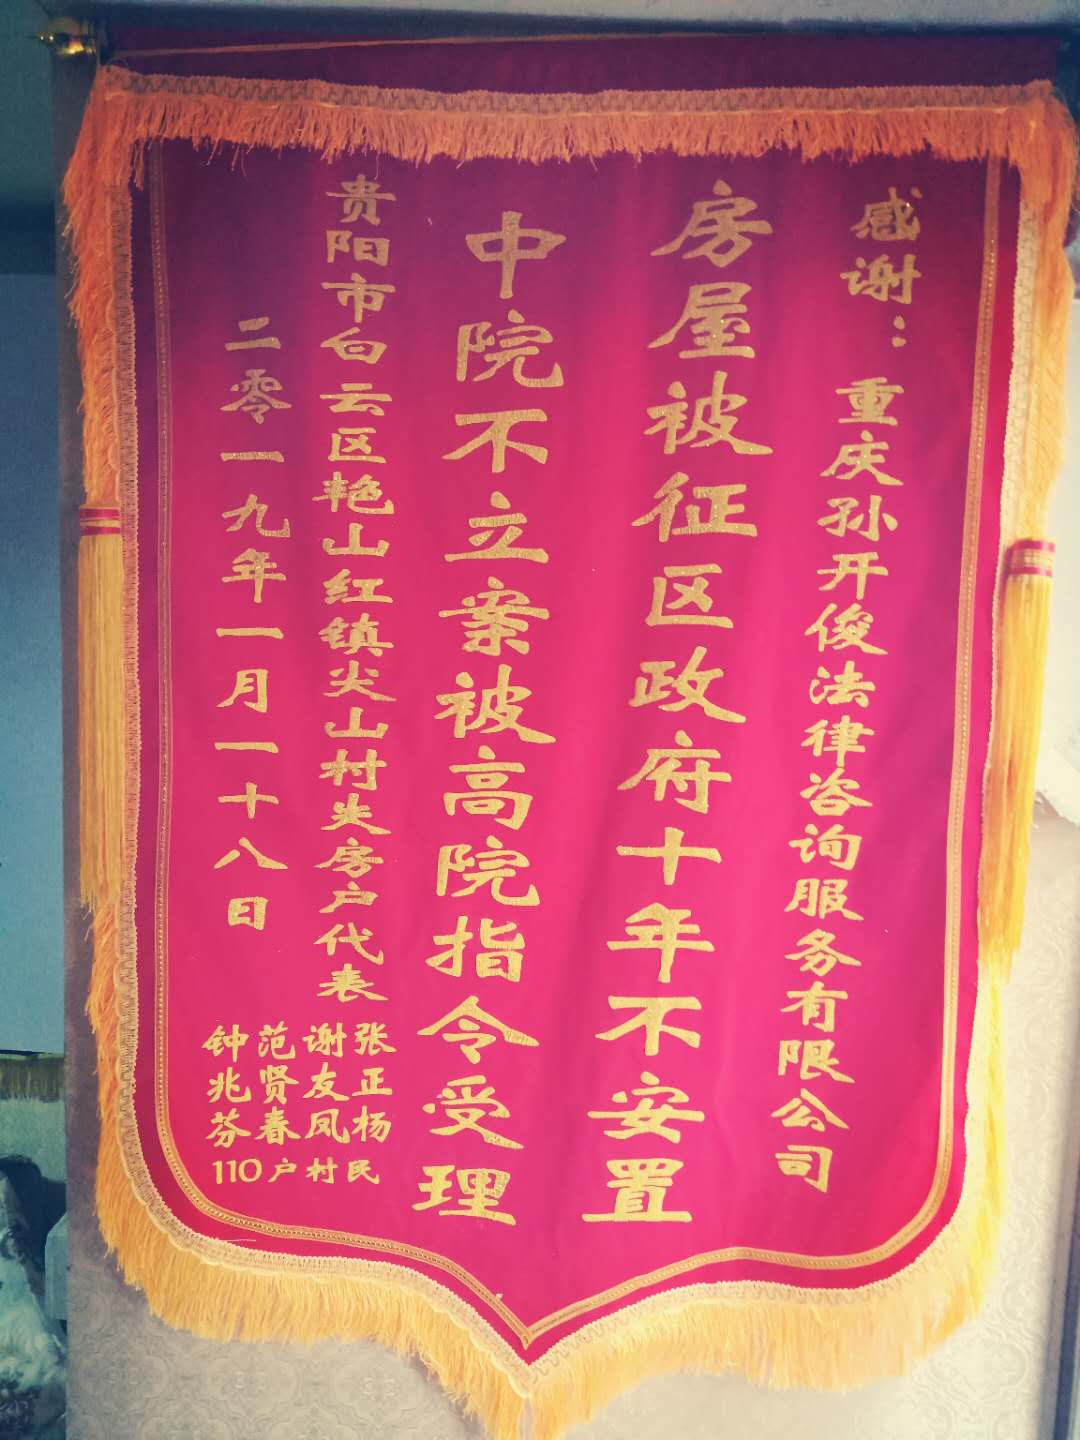 感谢：重庆孙开俊法律咨询服务有限公司
房屋被征区政府十年不安置
中院不立案被高院指令受理
贵阳市白云区艳山红镇尖山村失房户代表
张正杨
谢友凤
范贤春
钟兆芬
110户村民
二零一九年一月一十八日